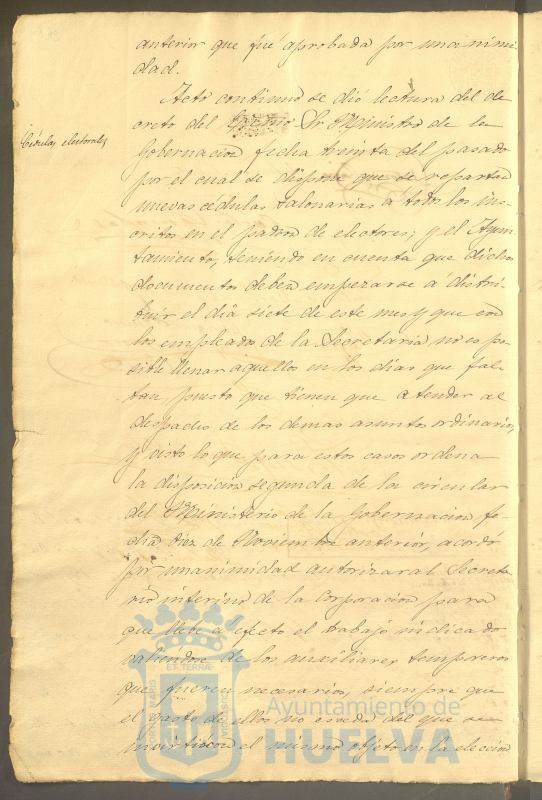 anterior que fué aprobada por unanimi-
dad.
Acto continuo se dió lectura del de
creto del Sr Ministro de la
Cédulas electorales
Gobernacion fecha treinta del pasado
por el cual se dispone que se repartan
nuevas cédulas talonarias a todos los ins-
critos en el padron de electores; y el Ayun-
tamiento, teniendo en cuenta que dichos
documentos deben empezarse á distri-
buir el dia siete de este mes y que con
los empleados de la Secretaria no es po-
sible llenar aquellos en los dias que fal-
tan puesto que tienen que atender al
despacho de los demas asuntos ordinarios,
y visto lo que para estos casos ordena
la disposicion segunda de la circular
del Ministerio de la Gobernacion fe-
cha diez de Noviembre anterior, acordó
por unanimidad autorizar al Secreta-
rio interino de la Corporacion para
que lleve a efecto el trabajo indicado
valiéndose de los auxiliares temporeros
que fueren necesarios, siempre que
el gasto de ellos no esceda del que se
invirtiera en el mismo objeto en la eleccion
PORTUS MARIS
ET TERRÆ
CUSTODIA
Ayuntamiento de
HUELVA